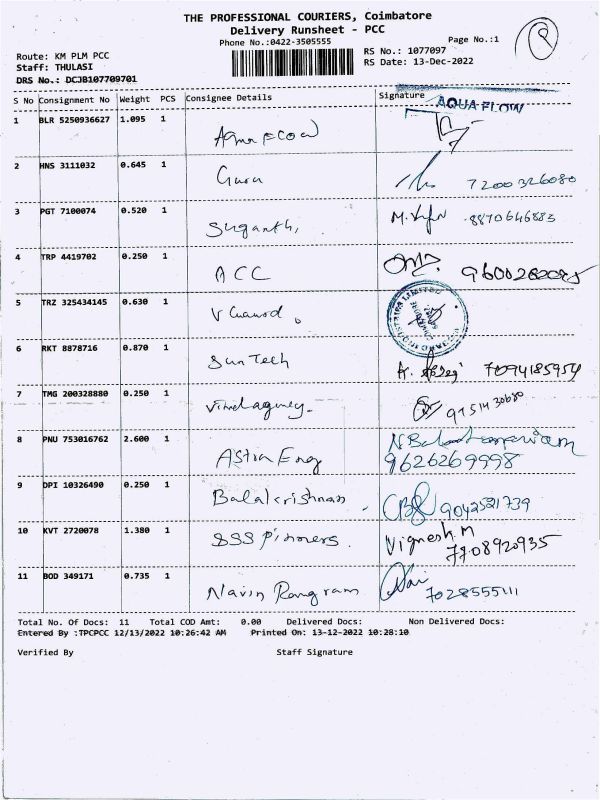 THE PROFESSIONAL COURIERS, Coimbatore
Delivery Runsheet - PCC
Phone No.:0422-3505555
Page No.:1
Route: KM PLM PCC
RS No.: 1077097
Staff: THULASI
RS Date: 13-Dec-2022
DRS No.: DCJB107709701
S No Consignment No Weight PCS Consignee Details Signature
AQUA FLOW
1 BLR 5250936627 1.095 1
2 HNS 3111032 0.645 1 Guru 7200326080
3 PGT 7100074 0.520 1 Suganthi 8870646883
4 TRP 4419702 0.250 1 ACC
5 TRZ 325434145 0.630 1
6 RKT 8878716 0.870 1 Sun Tech 7094185954
7 TMG 200328880 0.250 1
8 PNU 753016762 2.600 1 Astra Eng
9626269998
9 DPI 10326490 0.250 1 Balakrishnan 9042521739
10 KVT 2720078 1.380 1 SSS Vignesh.M
7708920935
11 BOD 349171 0.735 1 Navin Rangram
Total No. Of Docs: 11 Total COD Amt: 0.00 Delivered Docs: Non Delivered Docs:
Entered By :TPCPCC 12/13/2022 10:26:42 AM Printed On: 13-12-2022 10:28:10
Verified By Staff Signature